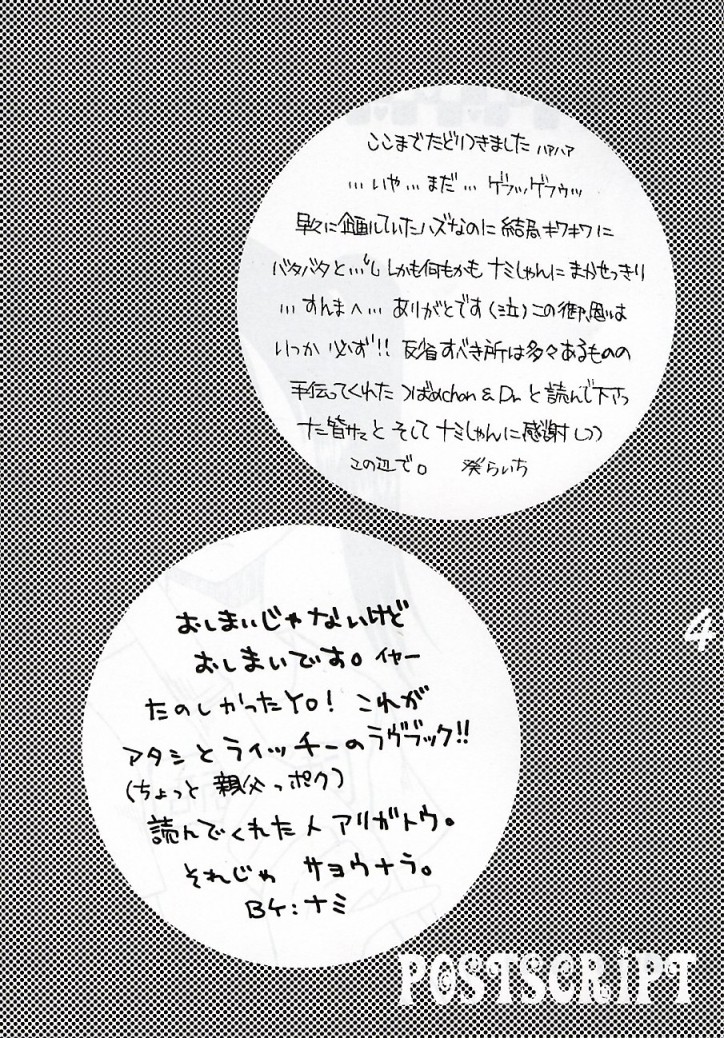 ここまでたどりつきました ハァハァ
…いや…まだ…ゲフッゲフゥッ
早々に企画していたハズなのに 結局ギワギワに
バタバタと…″し しかも何もかも ナミしゃんに まかせっきり
…すんまへ…ありがとです(泣)この御恩は
いつか 必ず!! 反省すべき所は多々あるものの
手伝ってくれた つばめchan & Dn と 読んで下さっ
た皆サマと そして ナミしゃんに感謝しつつ
この辺で。 葵らいち
おしまいじゃないけど
おしまいです。イヤー
たのしかったYO! これが
アタシとライッチーのラヴブック!!
(ちょっと 親父っポク)
読んでくれた人 アリガトウ。
それじゃ サヨウナラ。
BY:ナミ
4
POSTSCRiPT